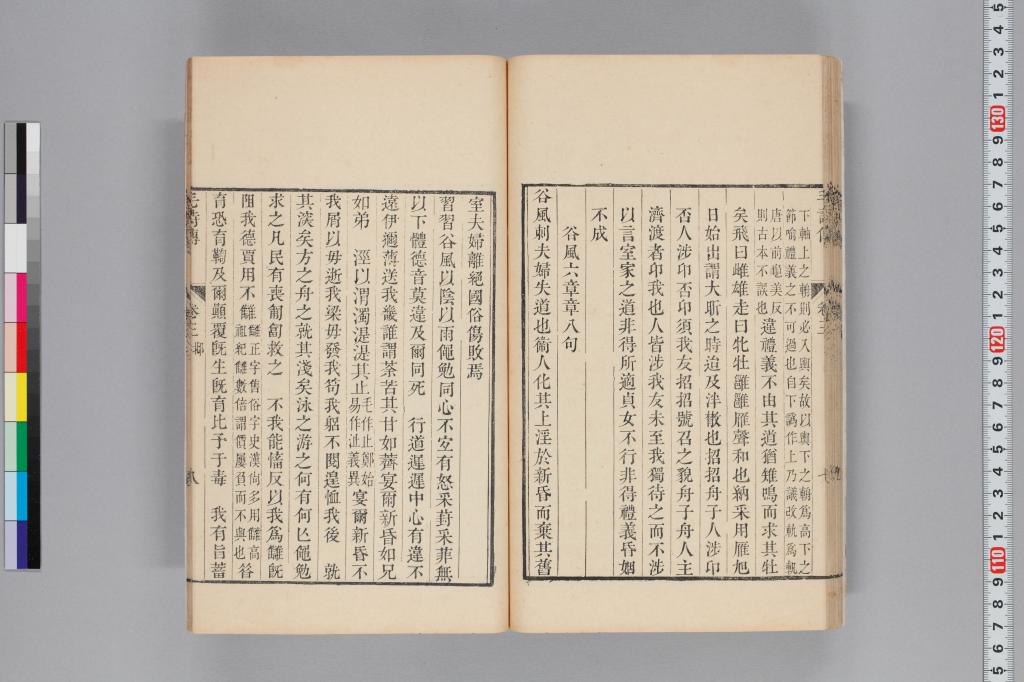 下軸上之輈則必入輿矣故以輿下之輈爲高下之
節喻禮義之不可過也自下譌作上乃議改軌爲軓
唐以前
美反
則古本不誤也
違禮義不由其道猶雉鳴而求其牡
矣飛曰雌雄走曰牝牡雝雝雁聲和也納采用雁旭
日始出謂大昕之時迨及泮散也招招舟子人涉卬
否人涉卬否卬須我友招招號召之貌舟子舟人主
濟渡者卬我也人皆涉我友未至我獨待之而不涉
以言室家之道非得所適貞女不行非得禮義昏姻
不成
谷風六章章八句
谷風刺夫婦失道也衞人化其上淫於新昏而棄其舊
室夫婦離絕國俗傷敗焉
習習谷風以陰以雨黽勉同心不宐有怒采葑采菲無
以下體德音莫違及爾同死　行道遲遲中心有違不
遠伊邇薄送我畿誰謂荼苦其甘如薺宴爾新昏如兄
如弟　涇以渭濁湜湜其止
毛作止鄭始
易作沚義異
宴爾新昏不
我屑以毋逝我梁毋發我笱我躬不閱遑恤我後　就
其湥矣方之舟之就其淺矣泳之游之何有何亾黽勉
求之凡民有喪匍匐救之　不我能慉反以我爲讎旣
阻我德賈用不讎
讎正字售俗字史漢尙多用讎高
祖紀讎數倍謂價屢負而不與也
昝
育恐育鞫及爾顚覆旣生旣育比予于毒　我有旨蓄
毛詩傳
卷三
邶
八